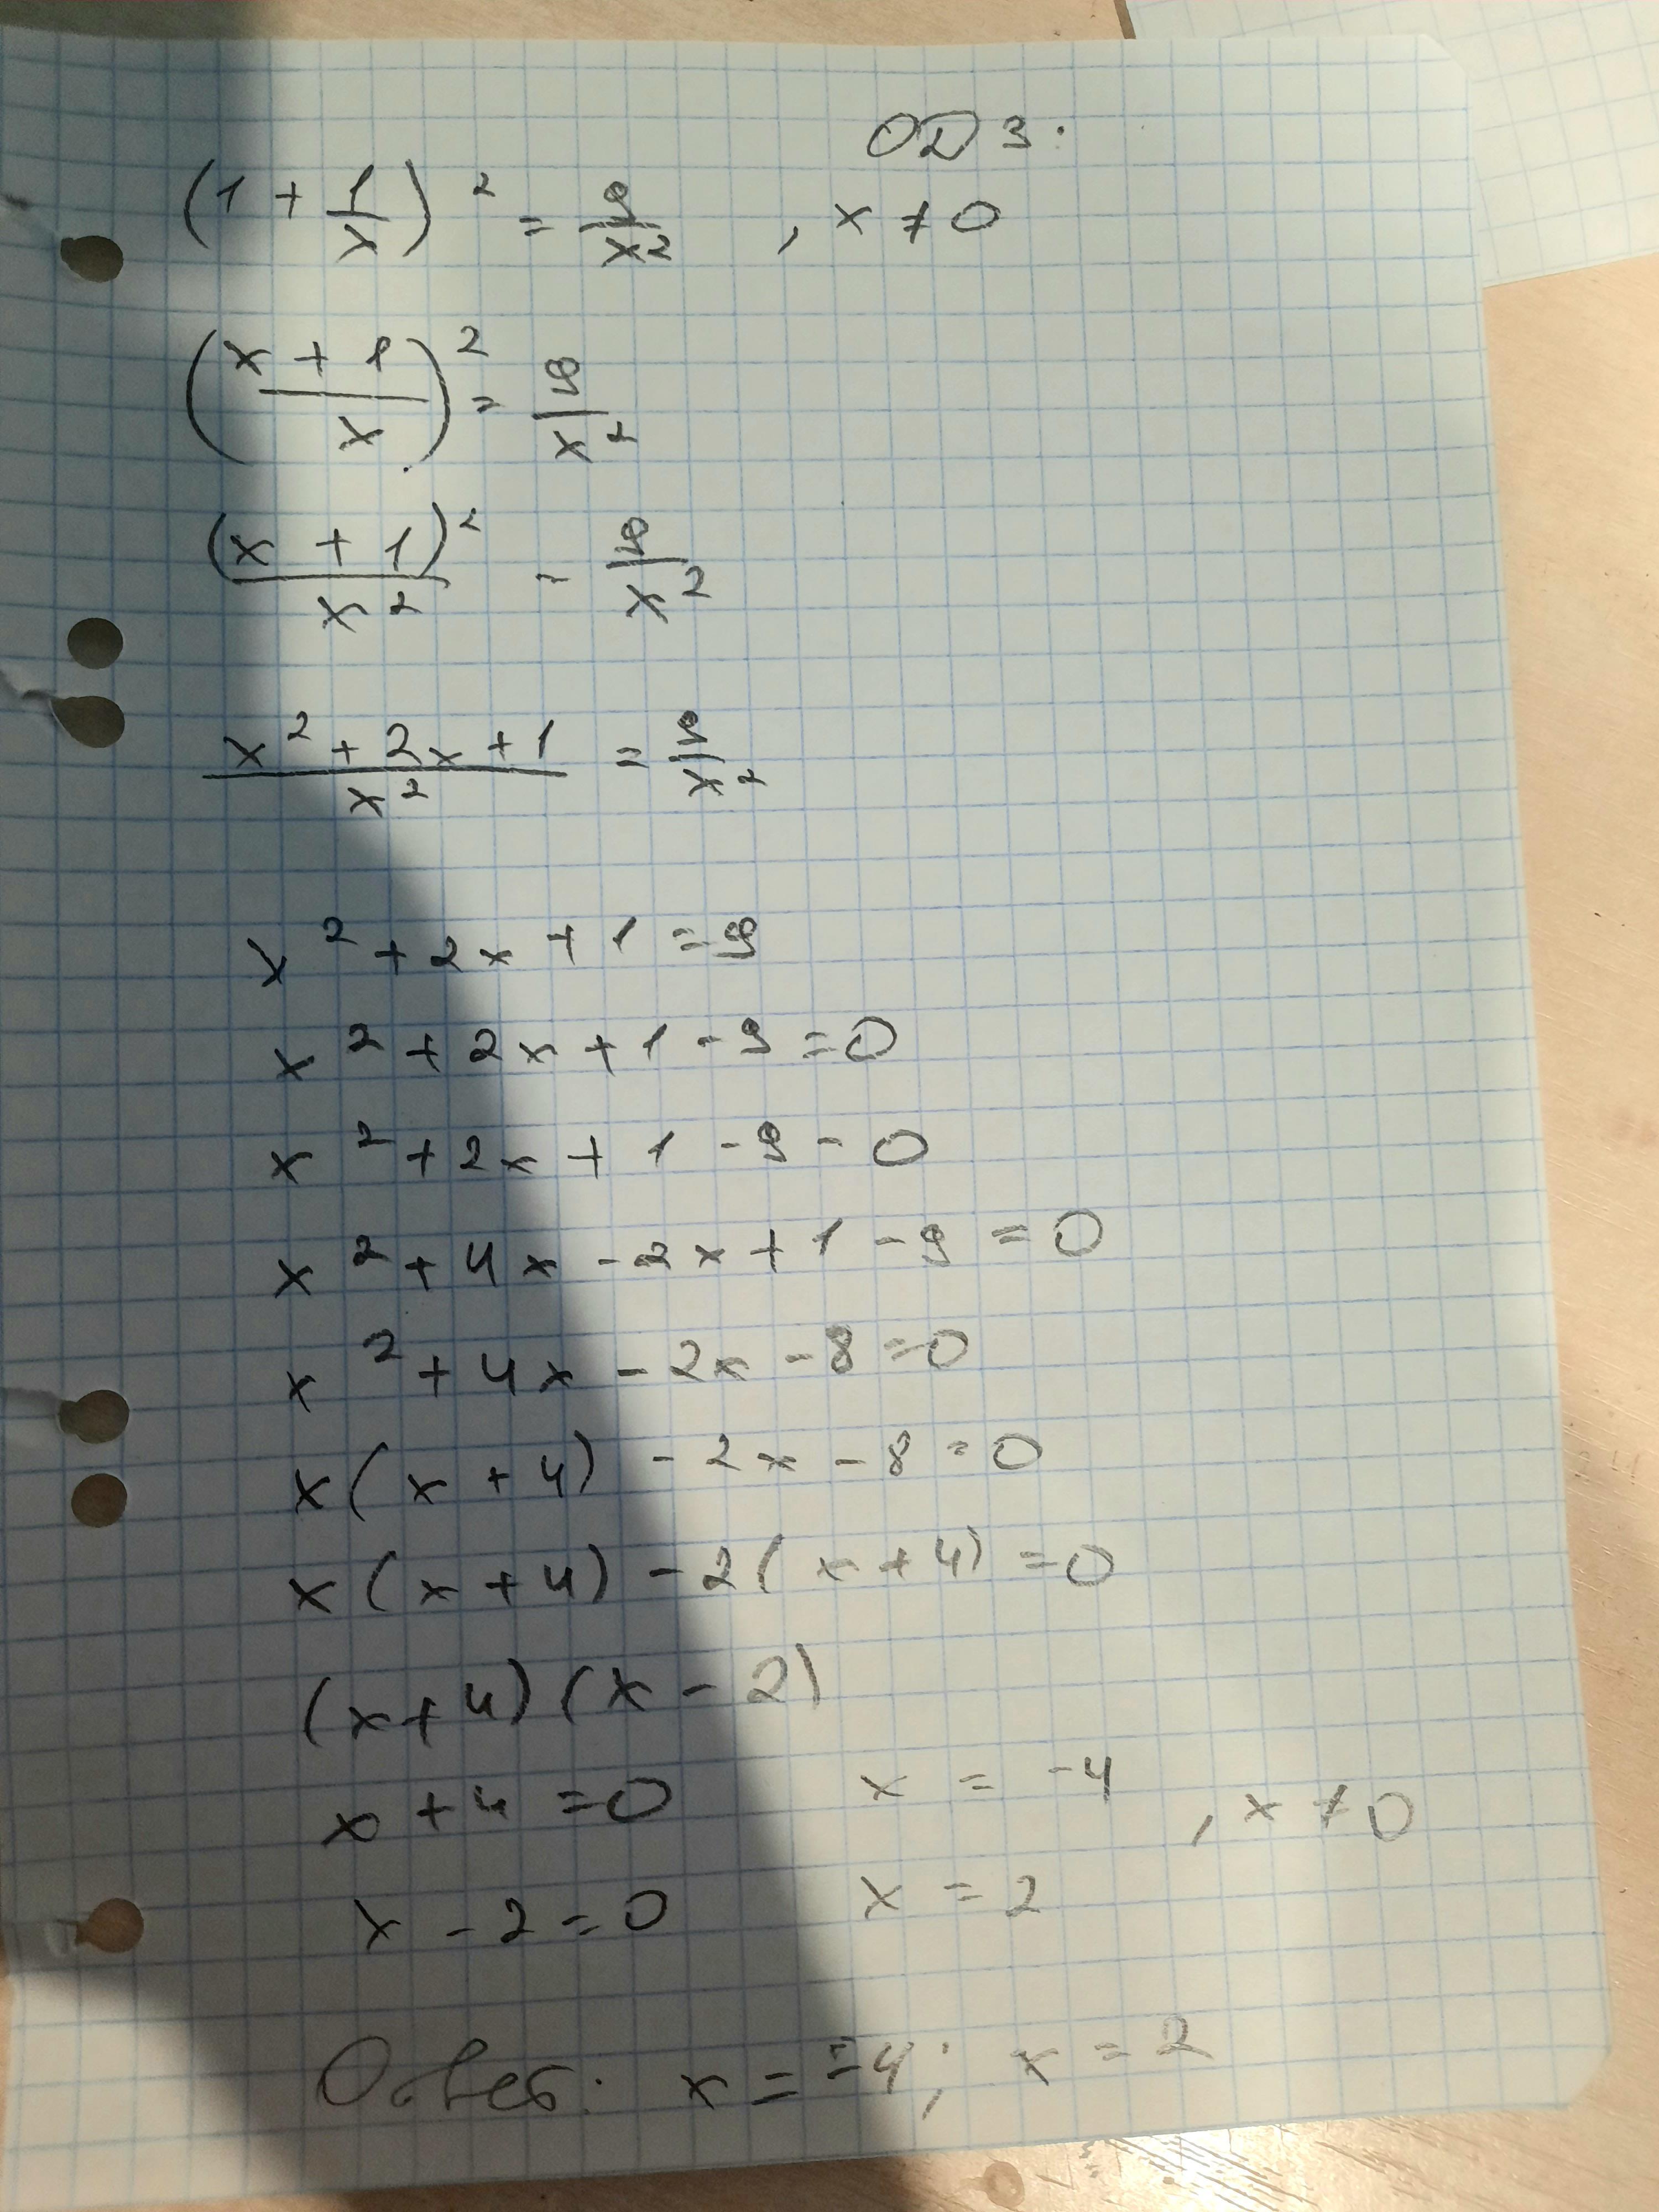 ОДЗ:
(1 + 1/x)² = 9/x² , x ≠ 0
((x + 1)/x)² = 9/x²
(x + 1)²/x² = 9/x²
(x² + 2x + 1)/x² = 9/x²
x² + 2x + 1 = 9
x² + 2x + 1 - 9 = 0
x² + 2x + 1 - 9 - 0
x² + 4x - 2x + 1 - 9 = 0
x² + 4x - 2x - 8 = 0
x(x + 4) - 2x - 8 = 0
x(x + 4) - 2(x + 4) = 0
(x + 4)(x - 2)
x + 4 = 0 x = -4 , x ≠ 0
x - 2 = 0 x = 2
Ответ: x = -4; x = 2